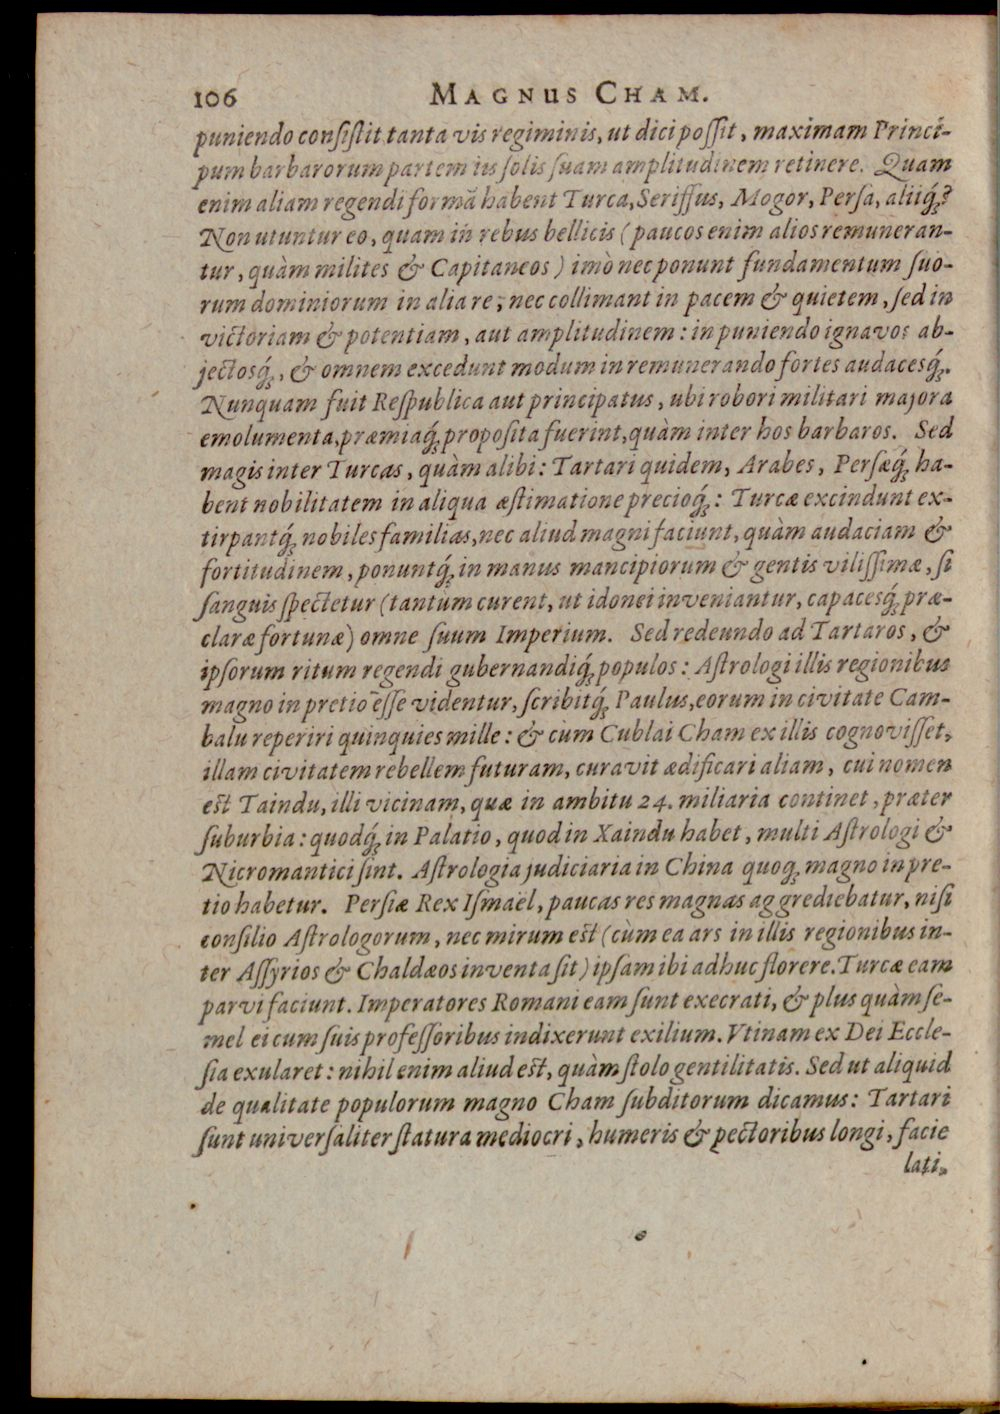 106 MAGNUS CHAM.
puniendo consistit tanta vis regiminis, ut dici possit, maximam Princi-
pum barbarorum partem iis solis suam amplitudinem retinere. Quam
enim aliam regendi formã habent Turca, Seriffus, Mogor, Persa, aliiq́;?
Non utuntur eo, quam in rebus bellicis (paucos enim alios remuneran-
tur, quàm milites & Capitaneos) imò nec ponunt fundamentum suo-
rum dominiorum in alia re, nec collimant in pacem & quietem, sed in
victoriam & potentiam, aut amplitudinem: in puniendo ignavos ab-
jectosq́;, & omnem excedunt modum in remunerando fortes audacesq́;.
Nunquam fuit Respublica aut principatus, ubi robori militari majora
emolumenta, præmiaq́; proposita fuerint, quàm inter hos barbaros. Sed
magis inter Turcas, quàm alibi: Tartari quidem, Arabes, Persæq́; ha-
bent nobilitatem in aliqua æstimatione precioq́;: Turcæ excindunt ex-
tirpantq́; nobiles familias, nec aliud magni faciunt, quàm audaciam &
fortitudinem, ponuntq́; in manus mancipiorum & gentis vilissimæ, si
sanguis spectetur (tantùm curent, ut idonei inveniantur, capacesq́; præ-
claræ fortunæ) omne suum Imperium. Sed redeundo ad Tartaros, &
ipsorum ritum regendi gubernandiq́; populos: Astrologi illis regionibus
magno in pretio esse videntur, scribitq́; Paulus, eorum in civitate Cam-
balu reperiri quinquies mille: & cùm Cublai Cham ex illis cognovisset,
illam civitatem rebellem futuram, curavit ædificari aliam, cui nomen
est Taindu, illi vicinam, quæ in ambitu 24. miliaria continet, præter
suburbia: quodq́; in Palatio, quod in Xaindu habet, multi Astrologi &
Nicromantici sint. Astrologia judiciaria in China quoq; magno in pre-
tio habetur. Persiæ Rex Ismaël, paucas res magnas aggrediebatur, nisi
consilio Astrologorum, nec mirum est (cùm ea ars in illis regionibus in-
ter Assyrios & Chaldæos inventa sit) ipsam ibi adhuc florere. Turcæ eam
parvi faciunt. Imperatores Romani eam sunt execrati, & plus quàm se-
mel ei cum suis professoribus indixerunt exilium. Vtinam ex Dei Eccle-
sia exularet: nihil enim aliud est, quàm stolo gentilitatis. Sed ut aliquid
de qualitate populorum magno Cham subditorum dicamus: Tartari
sunt universaliter statura mediocri, humeris & pectoribus longi, facie
lati,